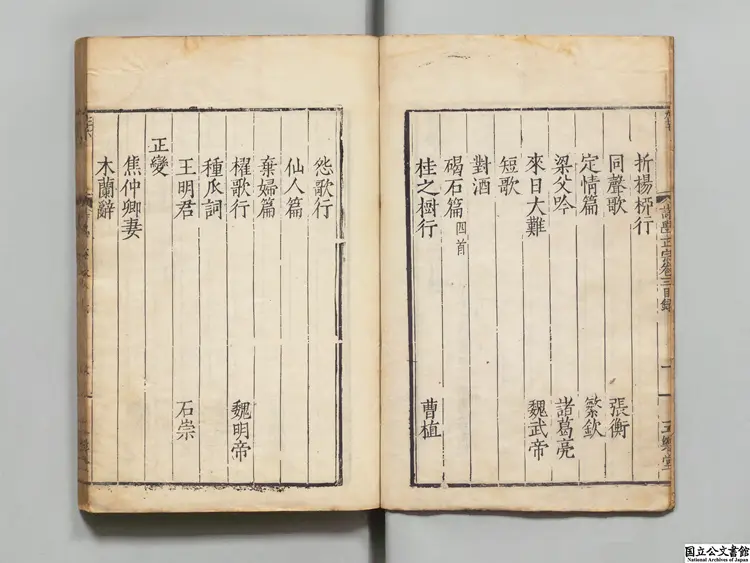 折楊栁行
同聲歌 張衡
定情篇 繁欽
梁父吟 諸葛亮
來日大難 魏武帝
短歌
對酒
碣石篇 四首
桂之樹行 曹植
怨歌行
仙人篇
棄婦篇
櫂歌行 魏明帝
種瓜詞
王明君 石崇
正變
焦仲卿妻
木蘭辭
国立公文書館
National Archives of Japan